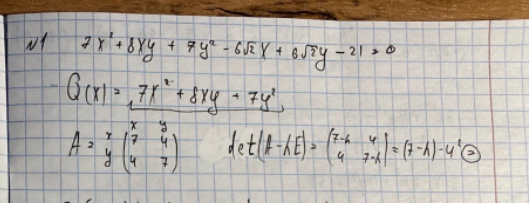 №1 7x² + 8xy + 7y² - 6√2x + 6√2y - 21 = 0
Q(x) = 7x² + 8xy + 7y²
x y
A = x y (7 4 4 7) det(A-λE) = |7-λ 4 4 7-λ| = (7-λ) - 4² =